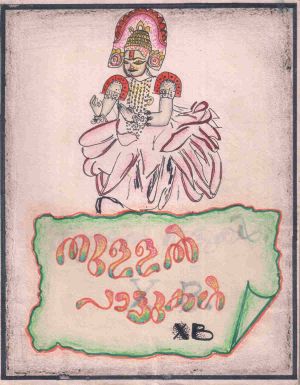 തുള്ളൽ
പാട്ടുകൾ
XB